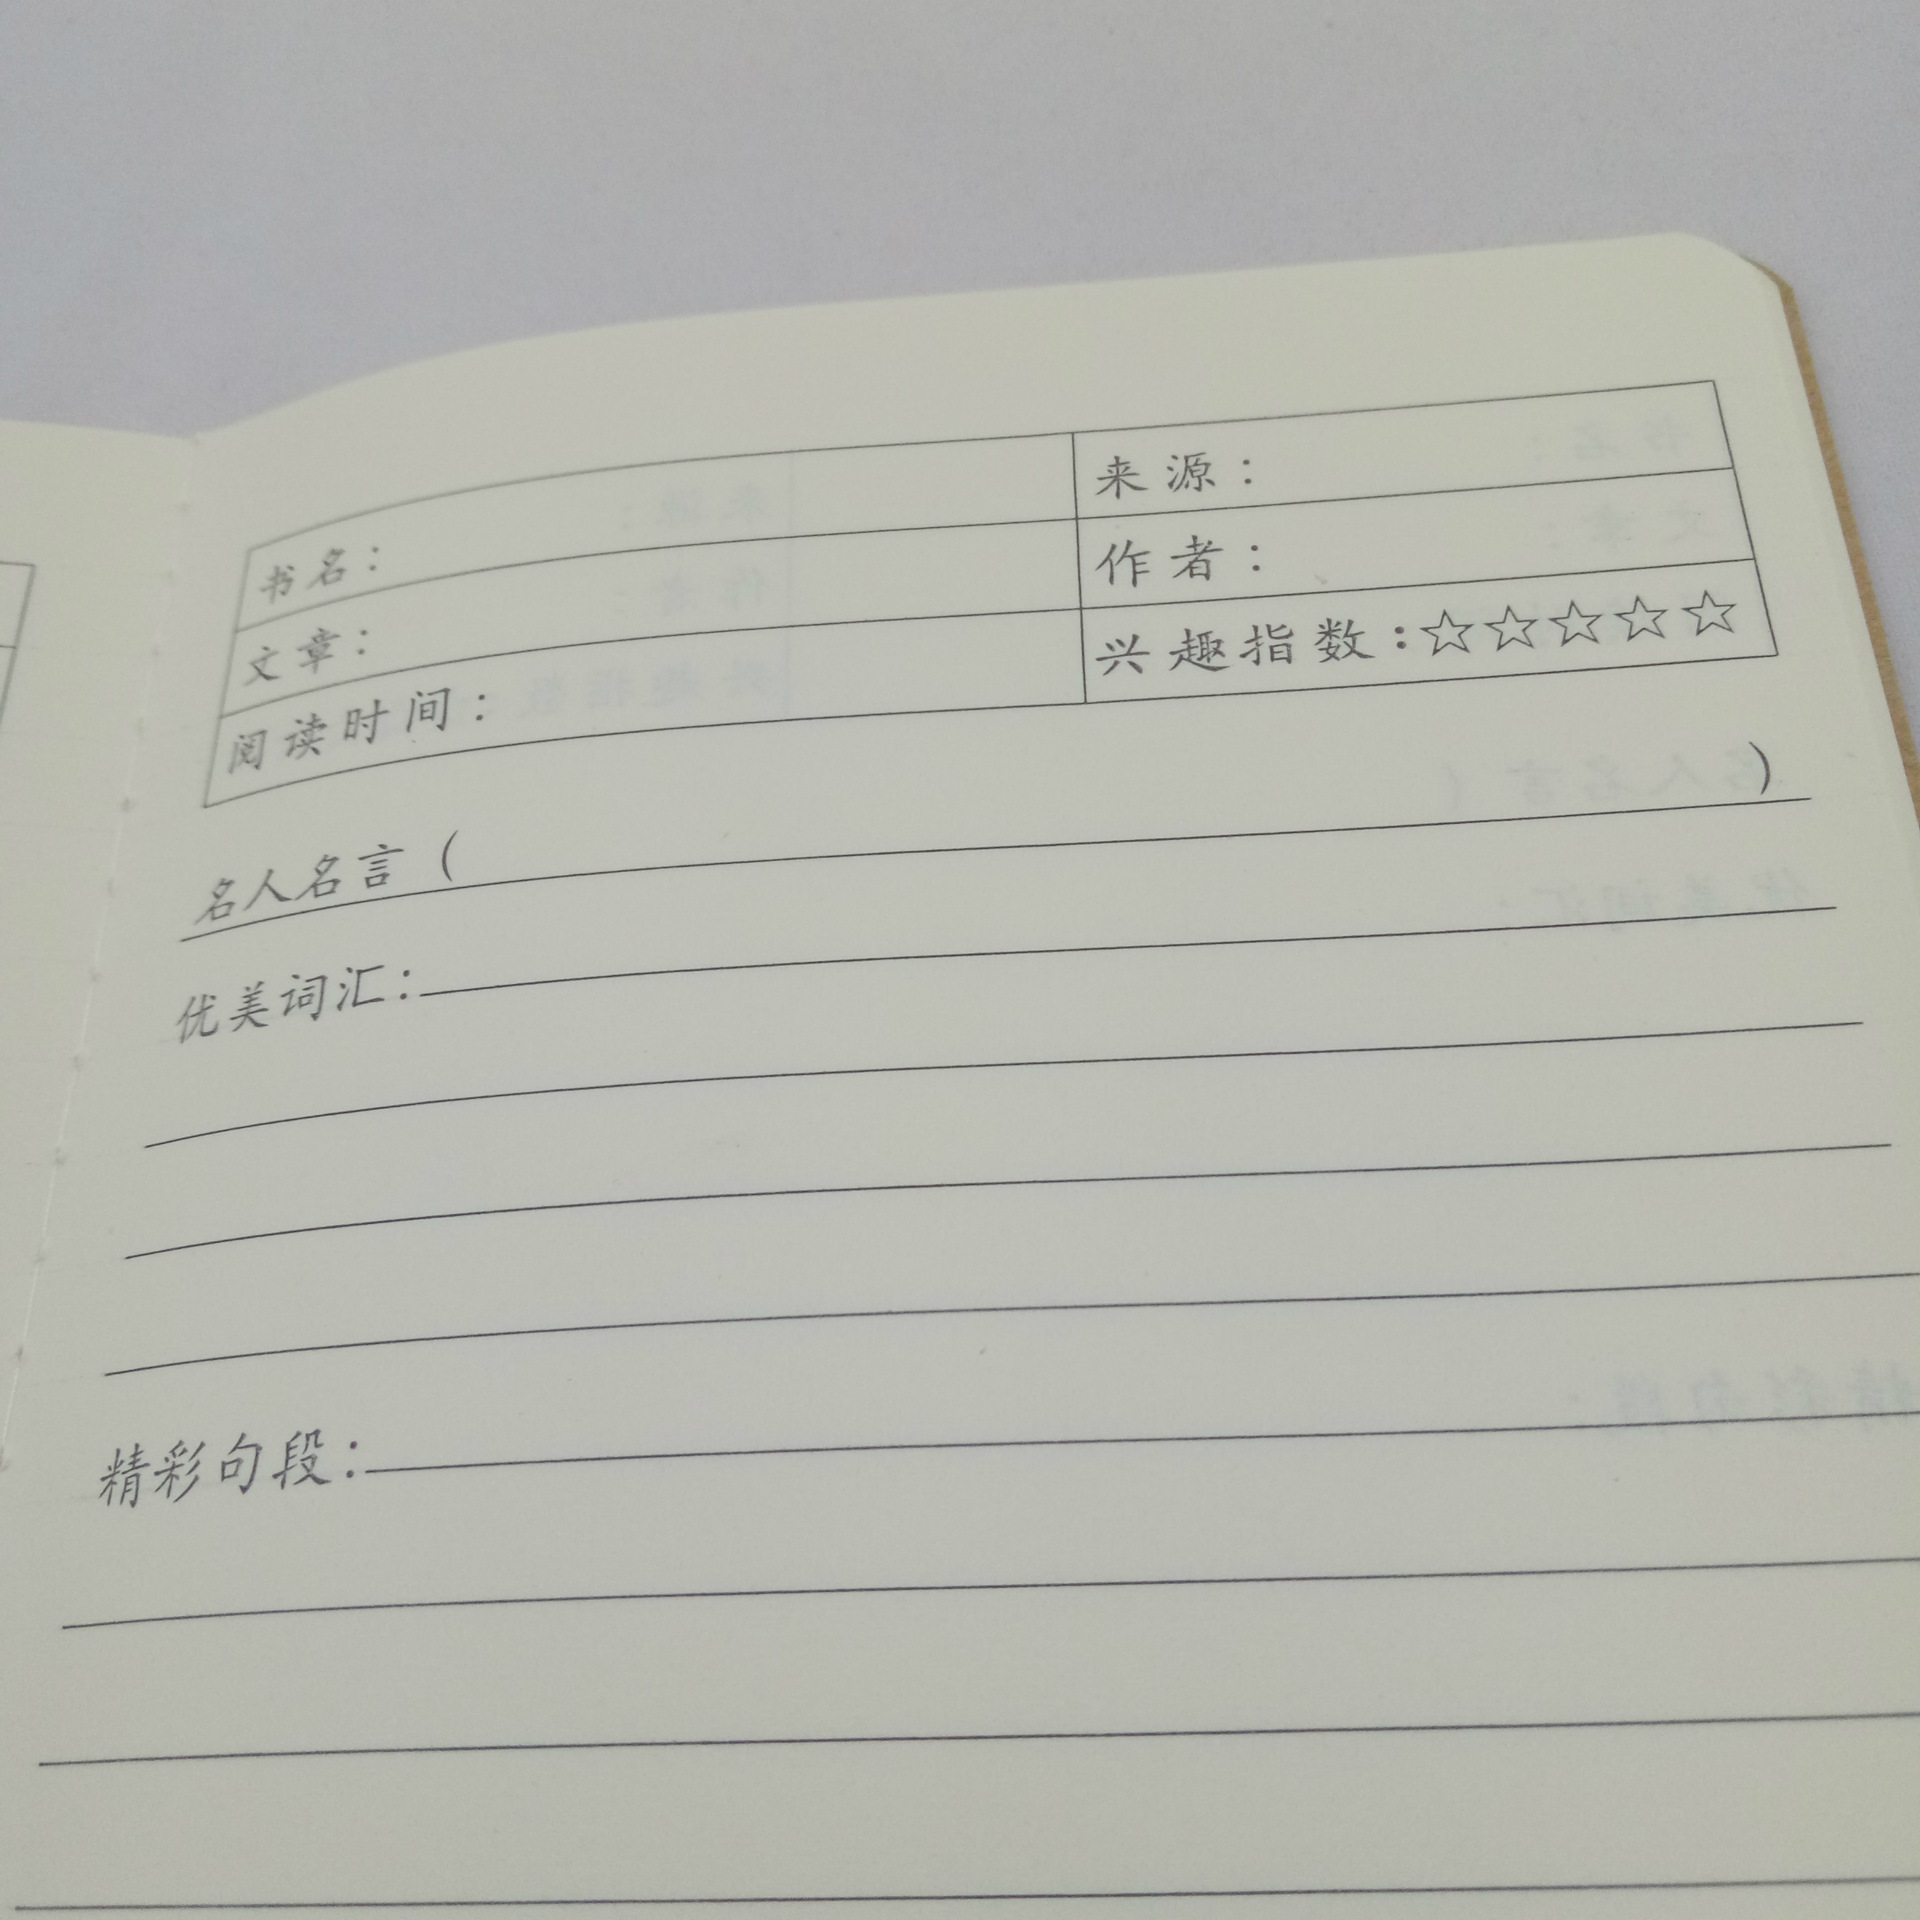 书名： 来源：
文章： 作者：
阅读时间： 兴趣指数：☆☆☆☆☆
名人名言（ ）
优美词汇：
精彩句段：